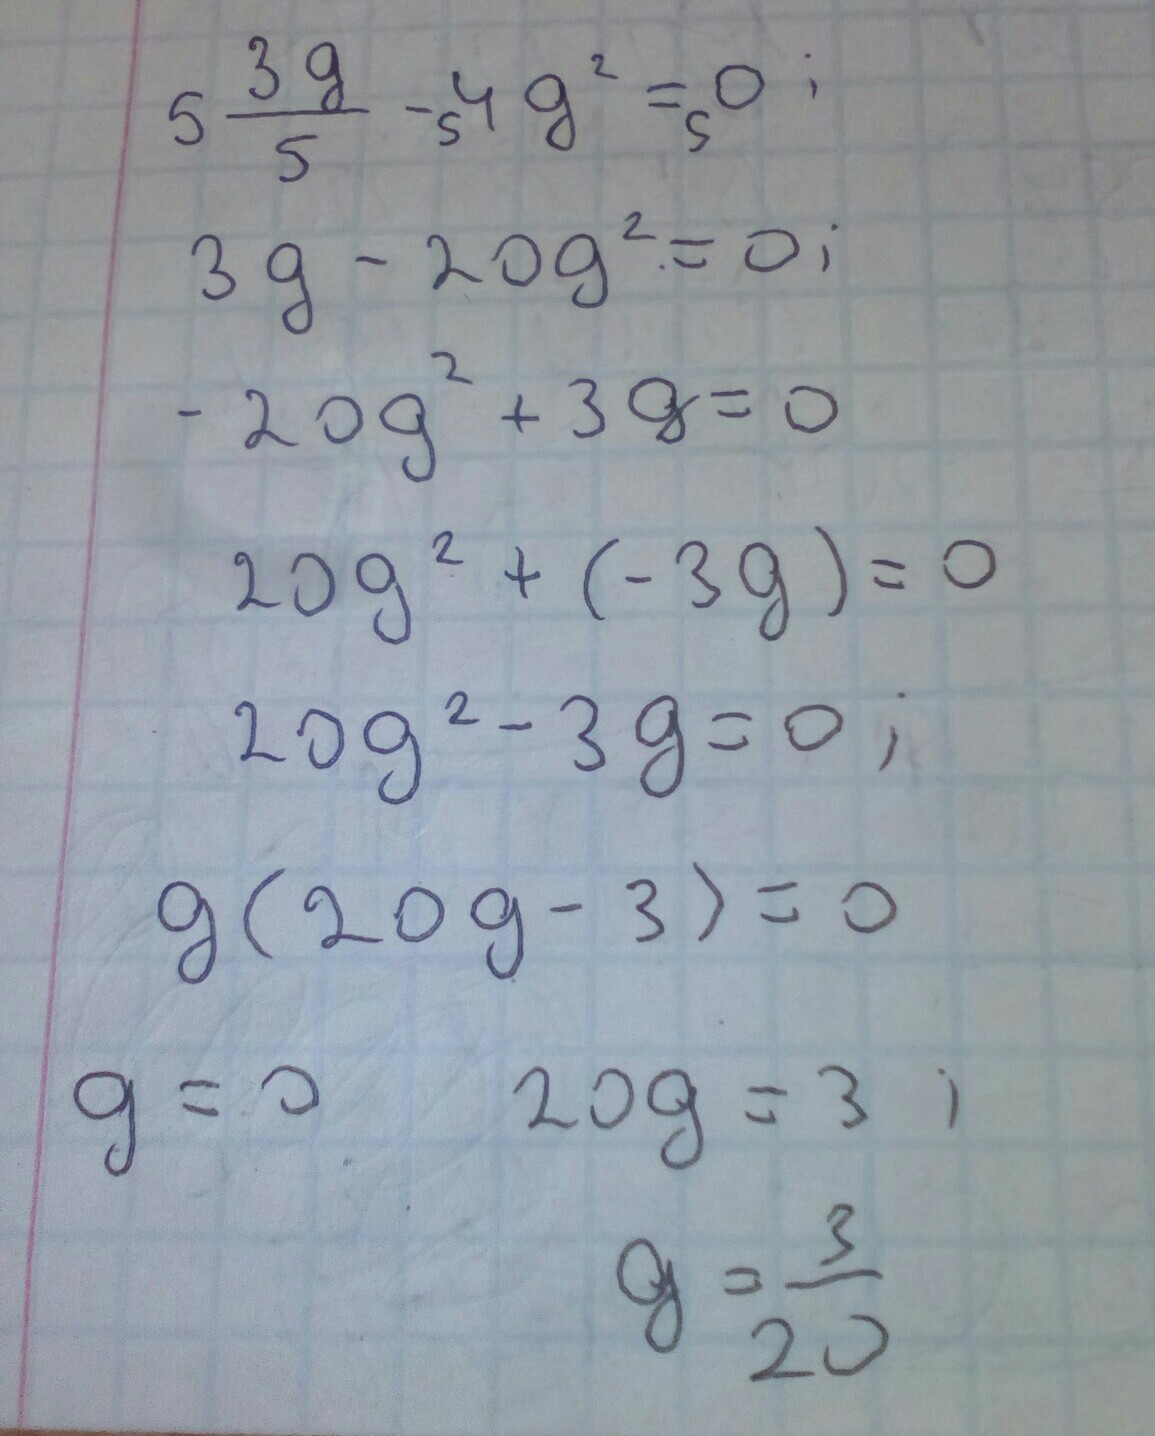 5 3g/5 - 5 4g² = 5 0;
3g - 20g² = 0;
-20g² + 3g = 0
20g² + (-3g) = 0
20g² - 3g = 0;
g(20g - 3) = 0
g = 0 20g = 3;
g = 3/20